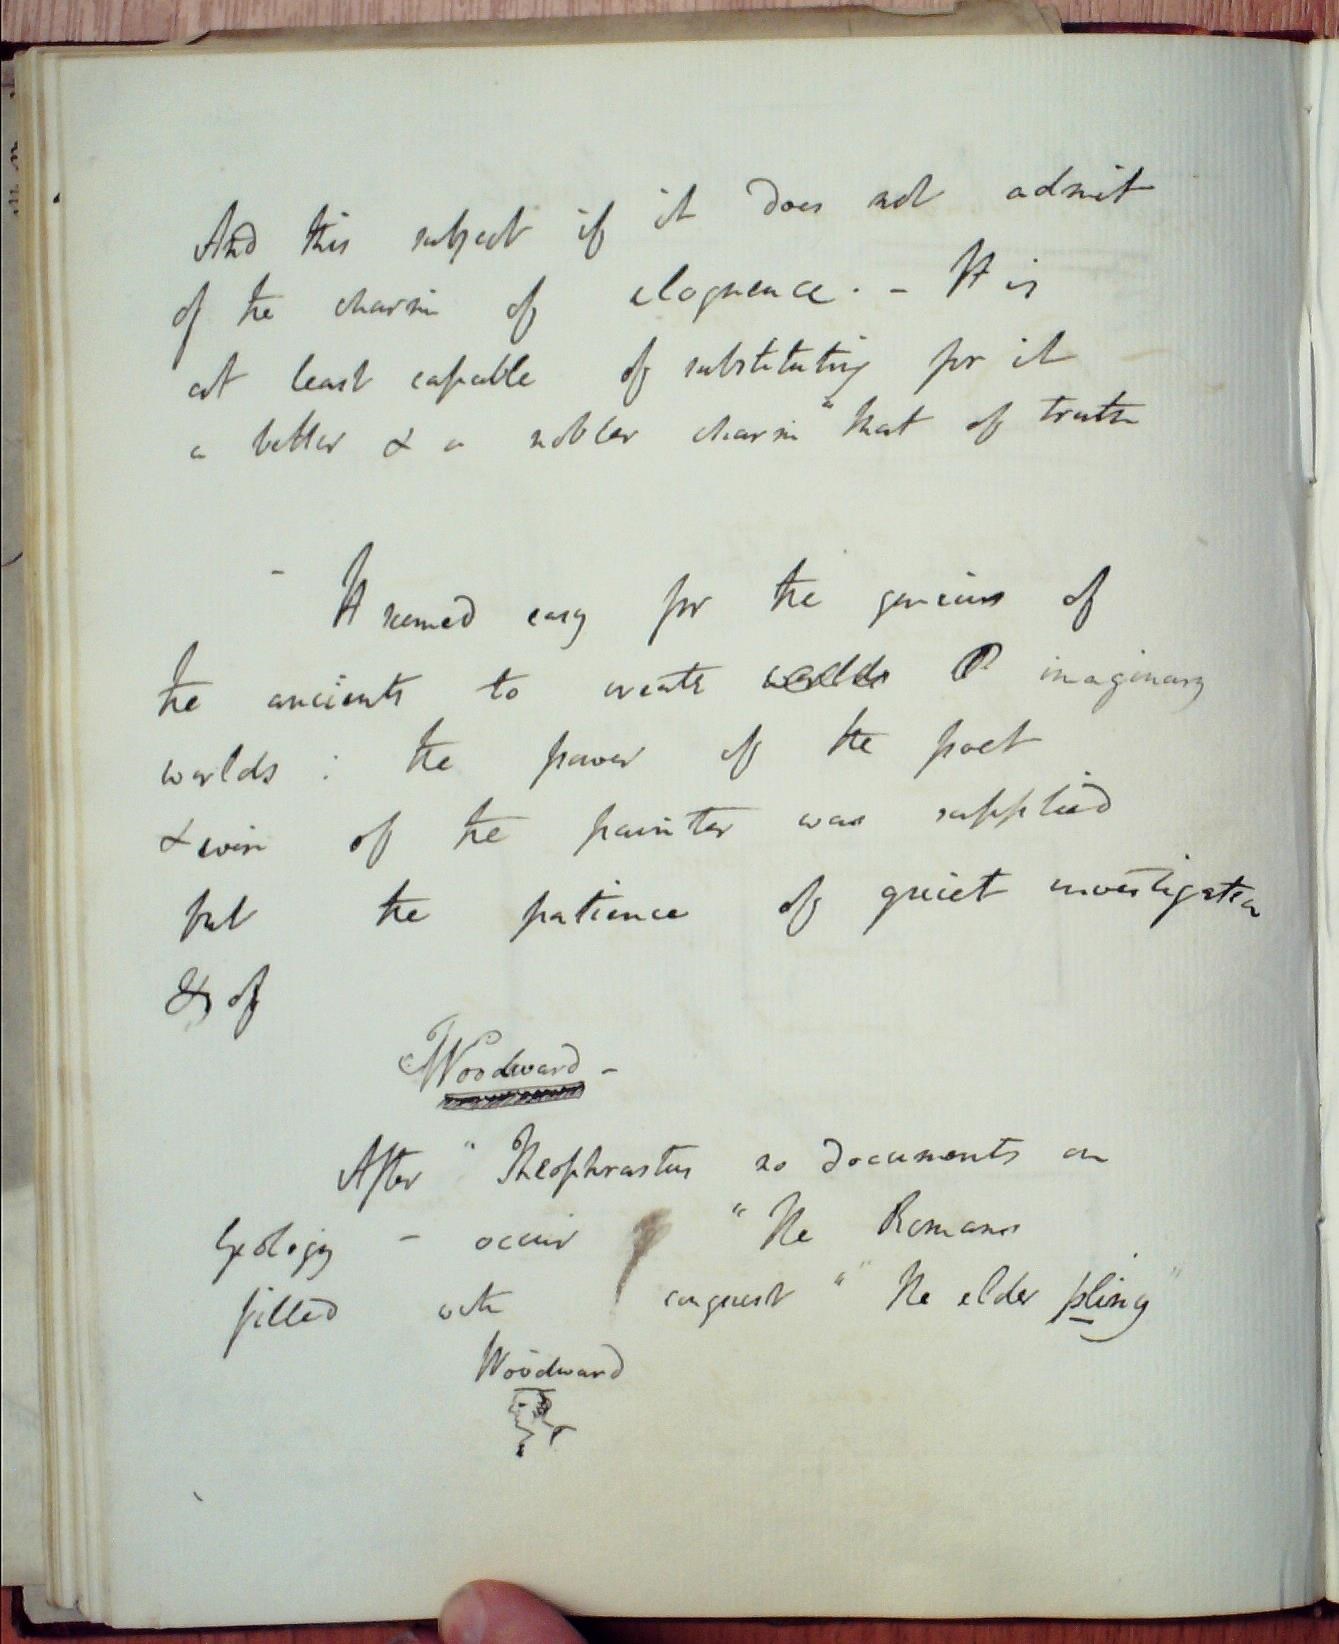 And this subject if it does not admit
of the charm of eloquence. - It is
at least capable of substituting for it
a better & a nobler charm "that of truth
- It seemed easy for the genius of
the ancients to create worlds imaginary
worlds : the power of the poet
& even of the painter was supplied
but the patience of quiet investigation
& of
Woodward -
After "Theophrastus no documents on
Geology - occur "The Romans
filled with conquest " "The elder pliny"
Woodward